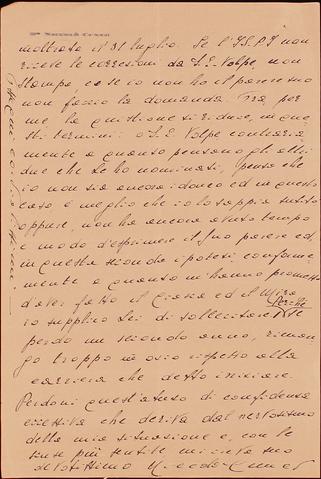 inoltrata il 31 luglio. Se l'I.S.P.I non
riceve le correzioni da S.E. Volpe, non
stampa, e se io non ho il parere suo
non faccio la domanda. Ora, per
me la questione si riduce, in que
sti termini: o S.E. Volpe contraria
mente a quanto pensano gli altri
due che Le ho nominati, pensa che
io non sia ancora idoneo ed in questo
caso è meglio che io lo sappia subito
oppure, non ha ancora avuto tempo
e modo d'esprimere il suo parere ed,
in questa seconda ipotesi, conforme
mente a quanto mi hanno promesso
d'aver fatto il
ed il
io supplico Lei di sollecitare. Se
perdo un secondo anno, riman
go troppo in
rispetto alla
carriera che debbo iniziare.
Perdoni quest'atto di confidenza
eccessiva che deriva dal nervosismo
della mia situazione e, con le
scuse più sentite mi creda suo
devotissimo